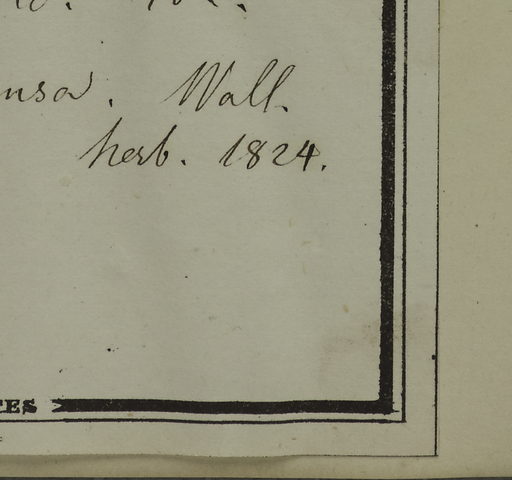 nsa. Wall.
herb. 1824.
TES